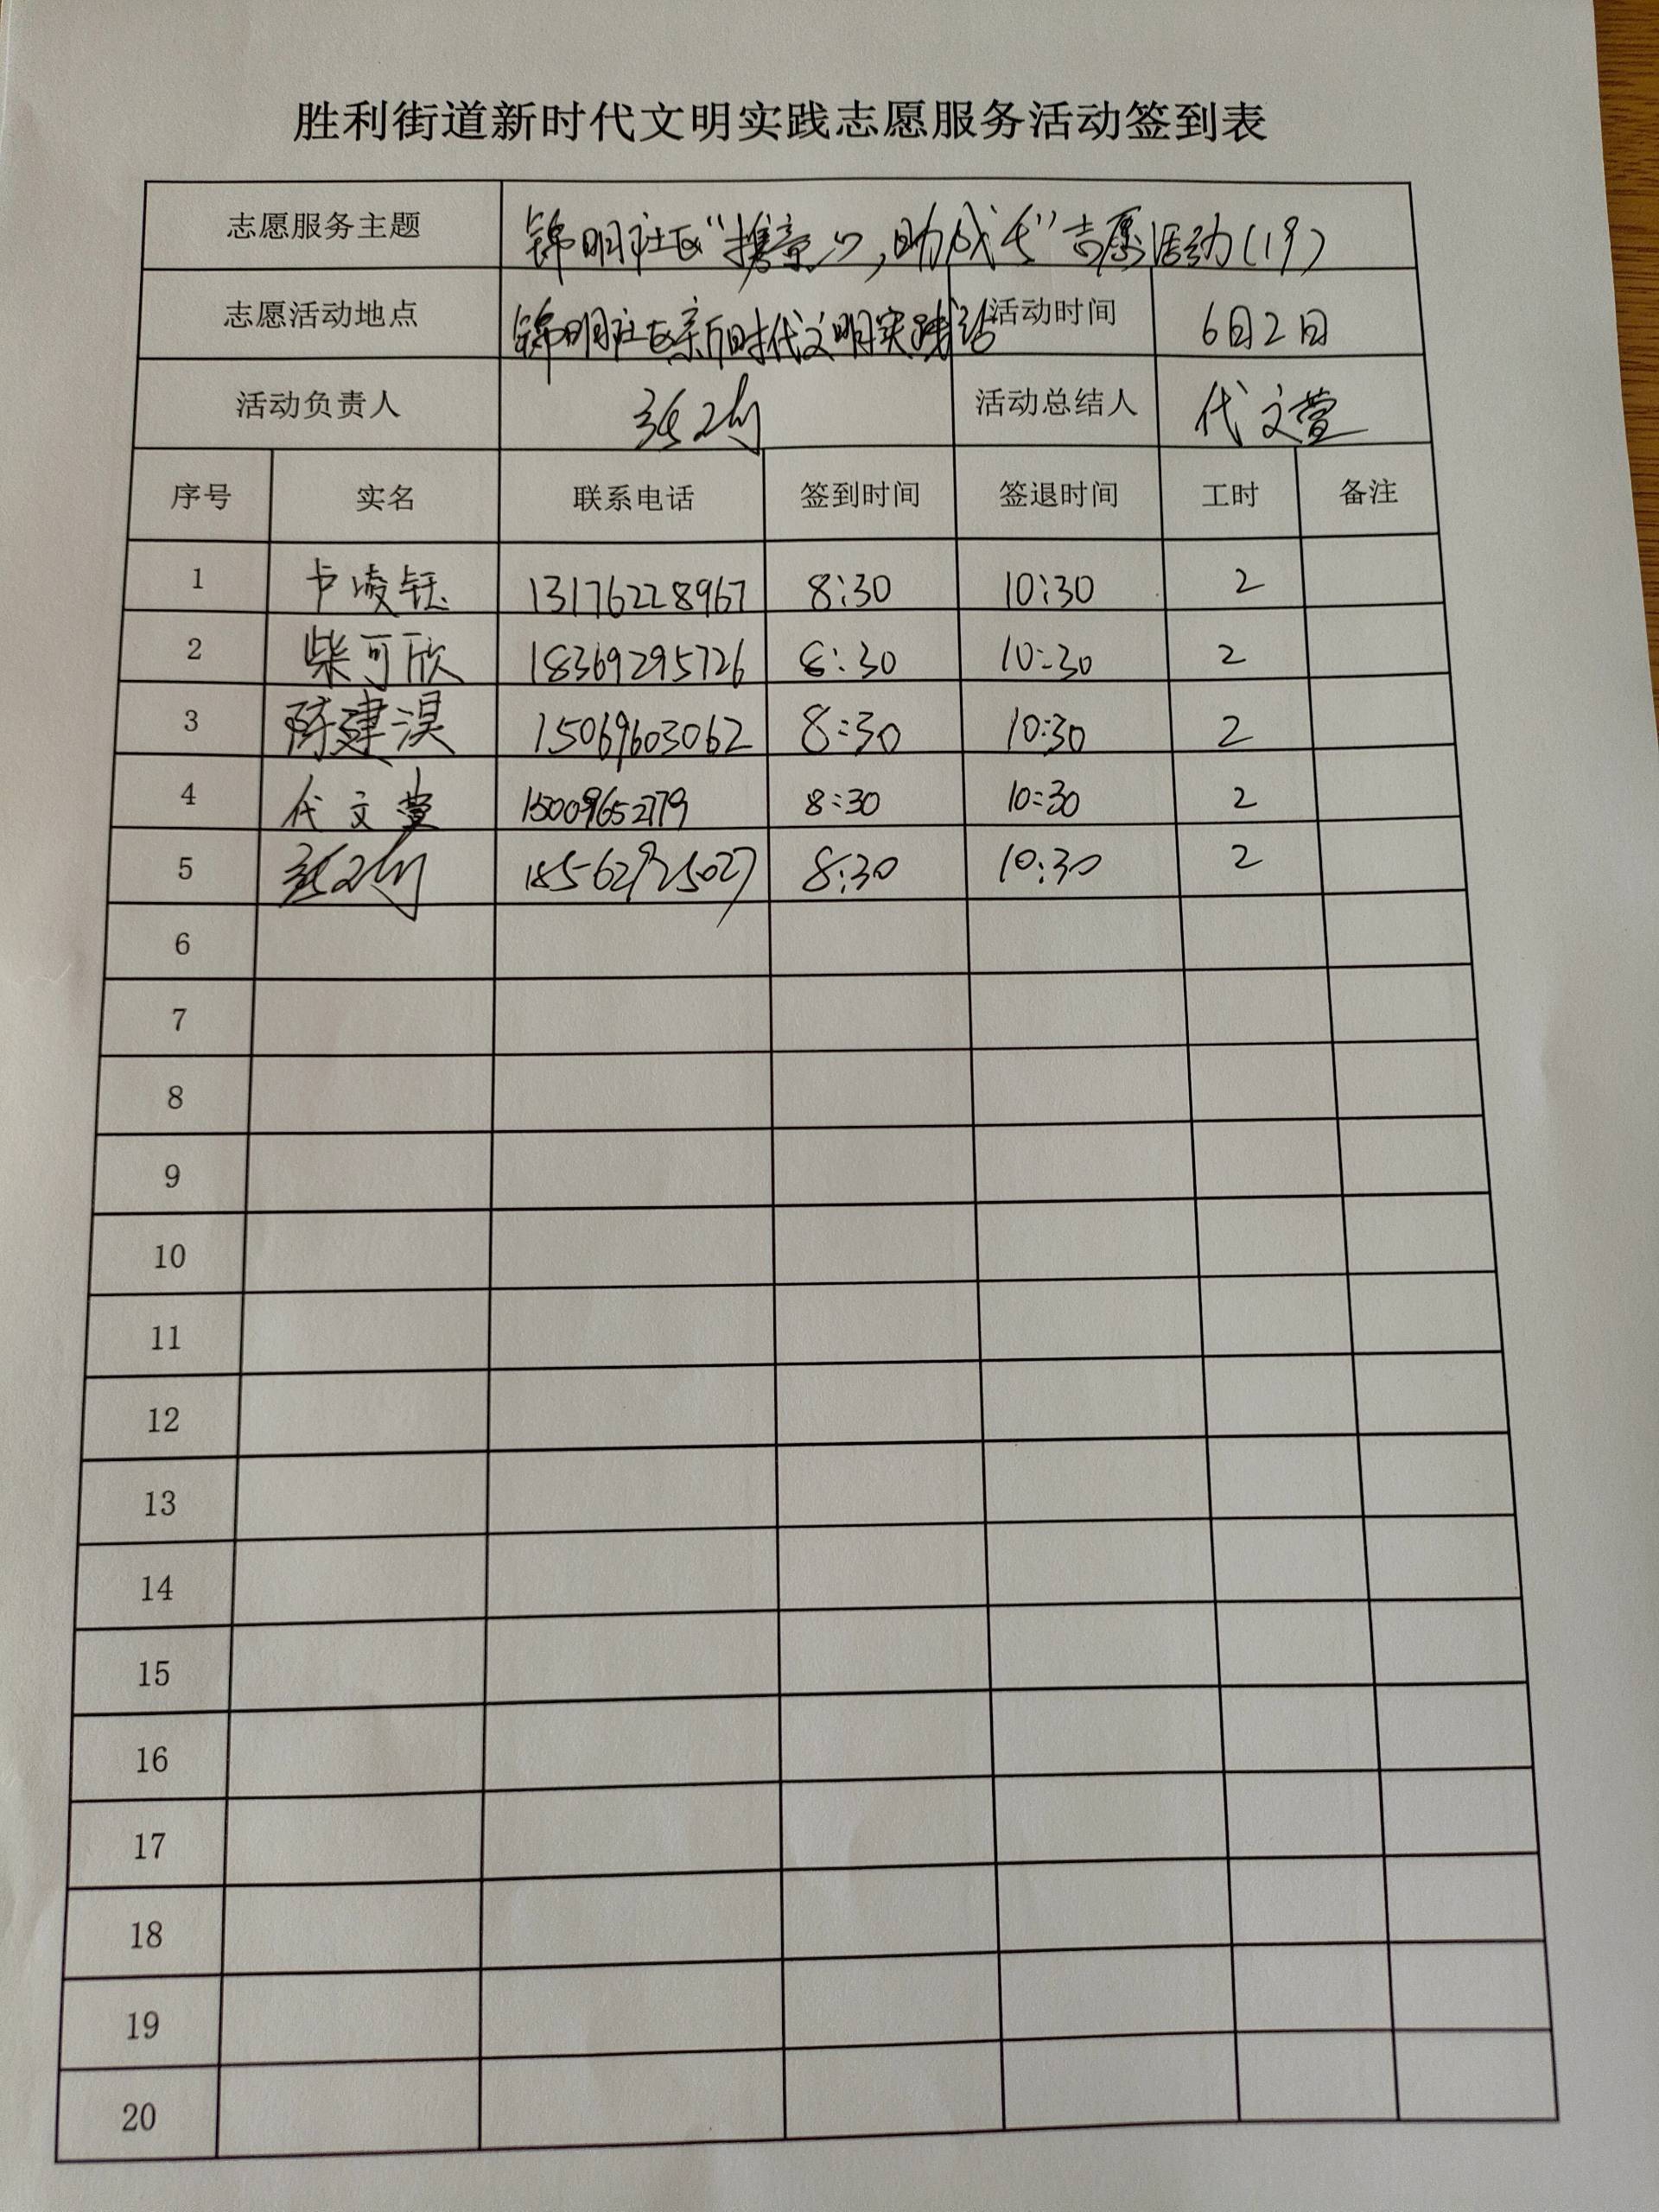 胜利街道新时代文明实践志愿服务活动签到表
志愿服务主题 锦明社区“携童心,助成长”志愿活动(19)
志愿活动地点 锦明社区新时代文明实践站 活动时间 6月2日
活动负责人 活动总结人 代文萱
序号 实名 联系电话 签到时间 签退时间 工时 备注
1 卢凌钰 13176228967 8:30 10:30 2
2 柴可欣 18369295726 8:30 10:30 2
3 陈建淏 15069603062 8:30 10:30 2
4 代文萱 15009652779 8:30 10:30 2
5 18562925027 8:30 10:30 2
6
7
8
9
10
11
12
13
14
15
16
17
18
19
20